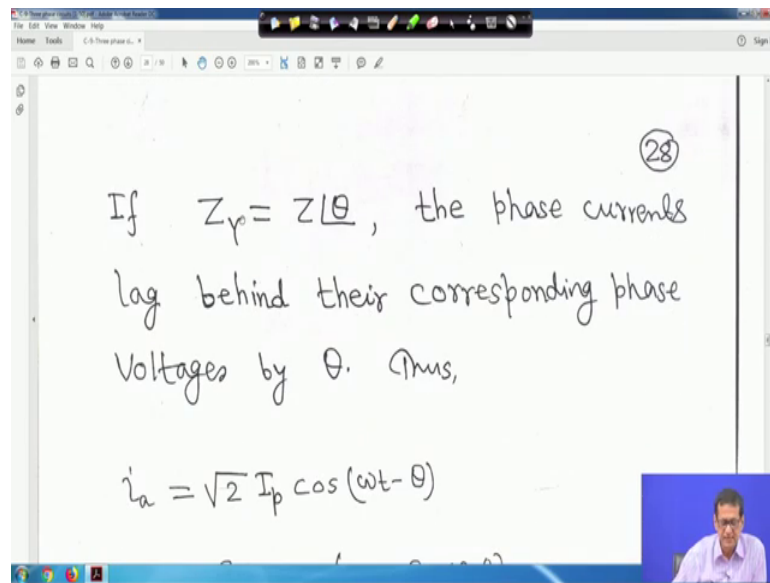 C-9-Three phase circuits
File Edit View Window Help
Home Tools C-9-Three phase ci... ×
Sign
28
If Z_Y = Z∠θ, the phase currents
lag behind their corresponding phase
voltages by θ. Thus,
i_a = √2 I_p cos(ωt - θ)